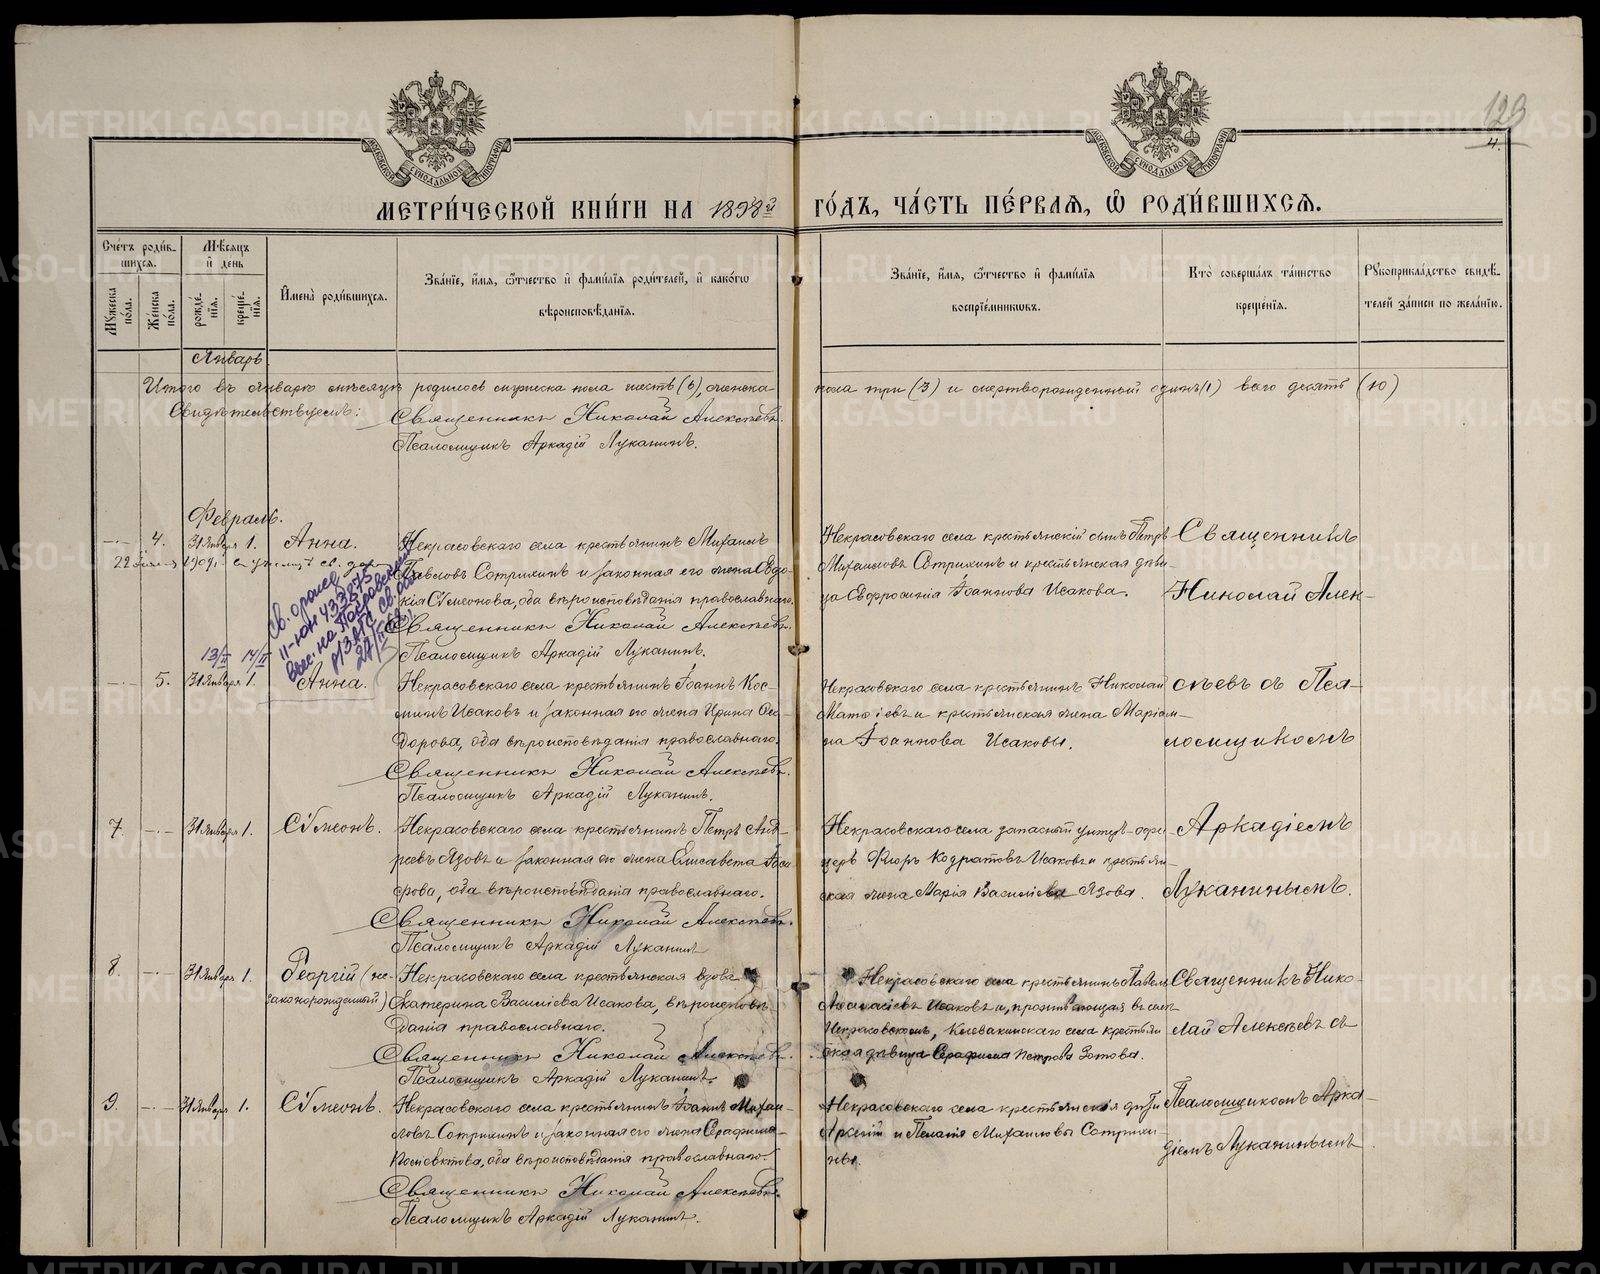 123
4.
МОСКОВСКОЙ СѴНОДАЛЬНОЙ ТИПОГРАФІИ
МОСКОВСКОЙ СѴНОДАЛЬНОЙ ТИПОГРАФІИ
МЕТРИ́ЧЕСКОЙ КНИ́ГИ НА 1898й ГО́ДЪ, ЧА́СТЬ ПЕ́РВАЯ, Ѡ РОДИ́ВШИХСЯ.
Сче́тъ роди́в-
шихся.
Му́жеска по́ла.
Же́нска по́ла.
Мѣ́сяцъ
и҆ день
рожде́нїя.
креще́нїя.
И҆мена̀ роди́вшихся.
Зва́нїе, и҆́мя, ѻ҆́тчество и҆ фами́лїя роди́телей, и҆ како́гѡ
вѣроисповѣ́данїя.
Зва́нїе, и҆́мя, ѻ҆́тчество и҆ фами́лїя
воспрїе́мникѡвъ.
Кто̀ соверша́лъ та́инство
креще́нїя.
Рꙋкоприкла́дство свидѣ́-
телей за́писи по жела́нїю.
Январь
Итого въ январѣ мѣсяцѣ родилось мужеска пола шесть (6), женска пола три (3) и мертворожденный одинъ (1) всего десять (10)
Свидѣтельствуемъ: Священникъ Николай Алексѣевъ.
Псаломщикъ Аркадій Луканинъ.
Февраль.
4. 31 Января 1. Анна. Некрасовскаго села крестьянинъ Михаилъ
Павловъ Сотрихинъ и законная его жена Евдо-
кія Сѵмеонова, оба вѣроисповѣданія православнаго.
Священникъ Николай Алексѣевъ.
Псаломщикъ Аркадій Луканинъ.
Некрасовскаго села крестьянскій сынъ Петръ
Михаиловъ Сотрихинъ и крестьянская дѣви-
ца Евфросинія Іоаннова Исакова.
Священникъ
Николай Алек-
13/II 14/II
5. 31 Января 1. Анна. Некрасовскаго села крестьянинъ Іоаннъ Кос-
минъ Исаковъ и законная его жена Ирина Ѳео-
дорова, оба вѣроисповѣданія православнаго.
Священникъ Николай Алексѣевъ.
Псаломщикъ Аркадій Луканинъ.
Некрасовскаго села крестьянинъ Николай
и крестьянская жена Маріам-
на Іоаннова Исаковы.
сѣевъ съ Пса-
ломщикомъ
7. 31 Января 1. Сѵмеонъ. Некрасовскаго села крестьянинъ Петръ Анд-
реевъ Язовъ и законная его жена Елисавета
оба вѣроисповѣданія православнаго.
Священникъ Николай Алексѣевъ.
Псаломщикъ Аркадій Луканинъ
Некрасовскаго села запасный унтеръ-офи-
церъ Кодратовъ Исаковъ и крестьян-
ская жена Марія Василіева Язова.
Аркадіемъ
Луканинымъ.
8. 31 Января 1. Георгій (не-
законорожденный)
Некрасовскаго села крестьянская вдова
Екатерина Василіева Исакова, вѣроисповѣ-
данія православнаго.
Священникъ Николай Алексѣевъ.
Псаломщикъ Аркадій Луканинъ.
Некрасовскаго села крестьянинъ Павелъ
Аѳанасіевъ Исаковъ и, проживающая въ селѣ
Некрасовскомъ, Клевакинскаго села крестьян-
ская дѣвица Серафима Петрова Зотова.
Священникъ Нико-
лай Алексѣевъ съ
9. 31 Января 1. Сѵмеонъ. Некрасовскаго села крестьянинъ Іоаннъ Михаи-
ловъ Сотрихинъ и законная его жена Серафима
оба вѣроисповѣданія православнаго.
Священникъ Николай Алексѣевъ.
Псаломщикъ Аркадій Луканинъ.
Некрасовскаго села крестьянскія дѣти
Арсеній и Пелагія Михаиловы Сотрихи-
ны.
Псаломщикомъ Арка-
діемъ Луканинымъ
METRIKI.GASO-URAL.RU